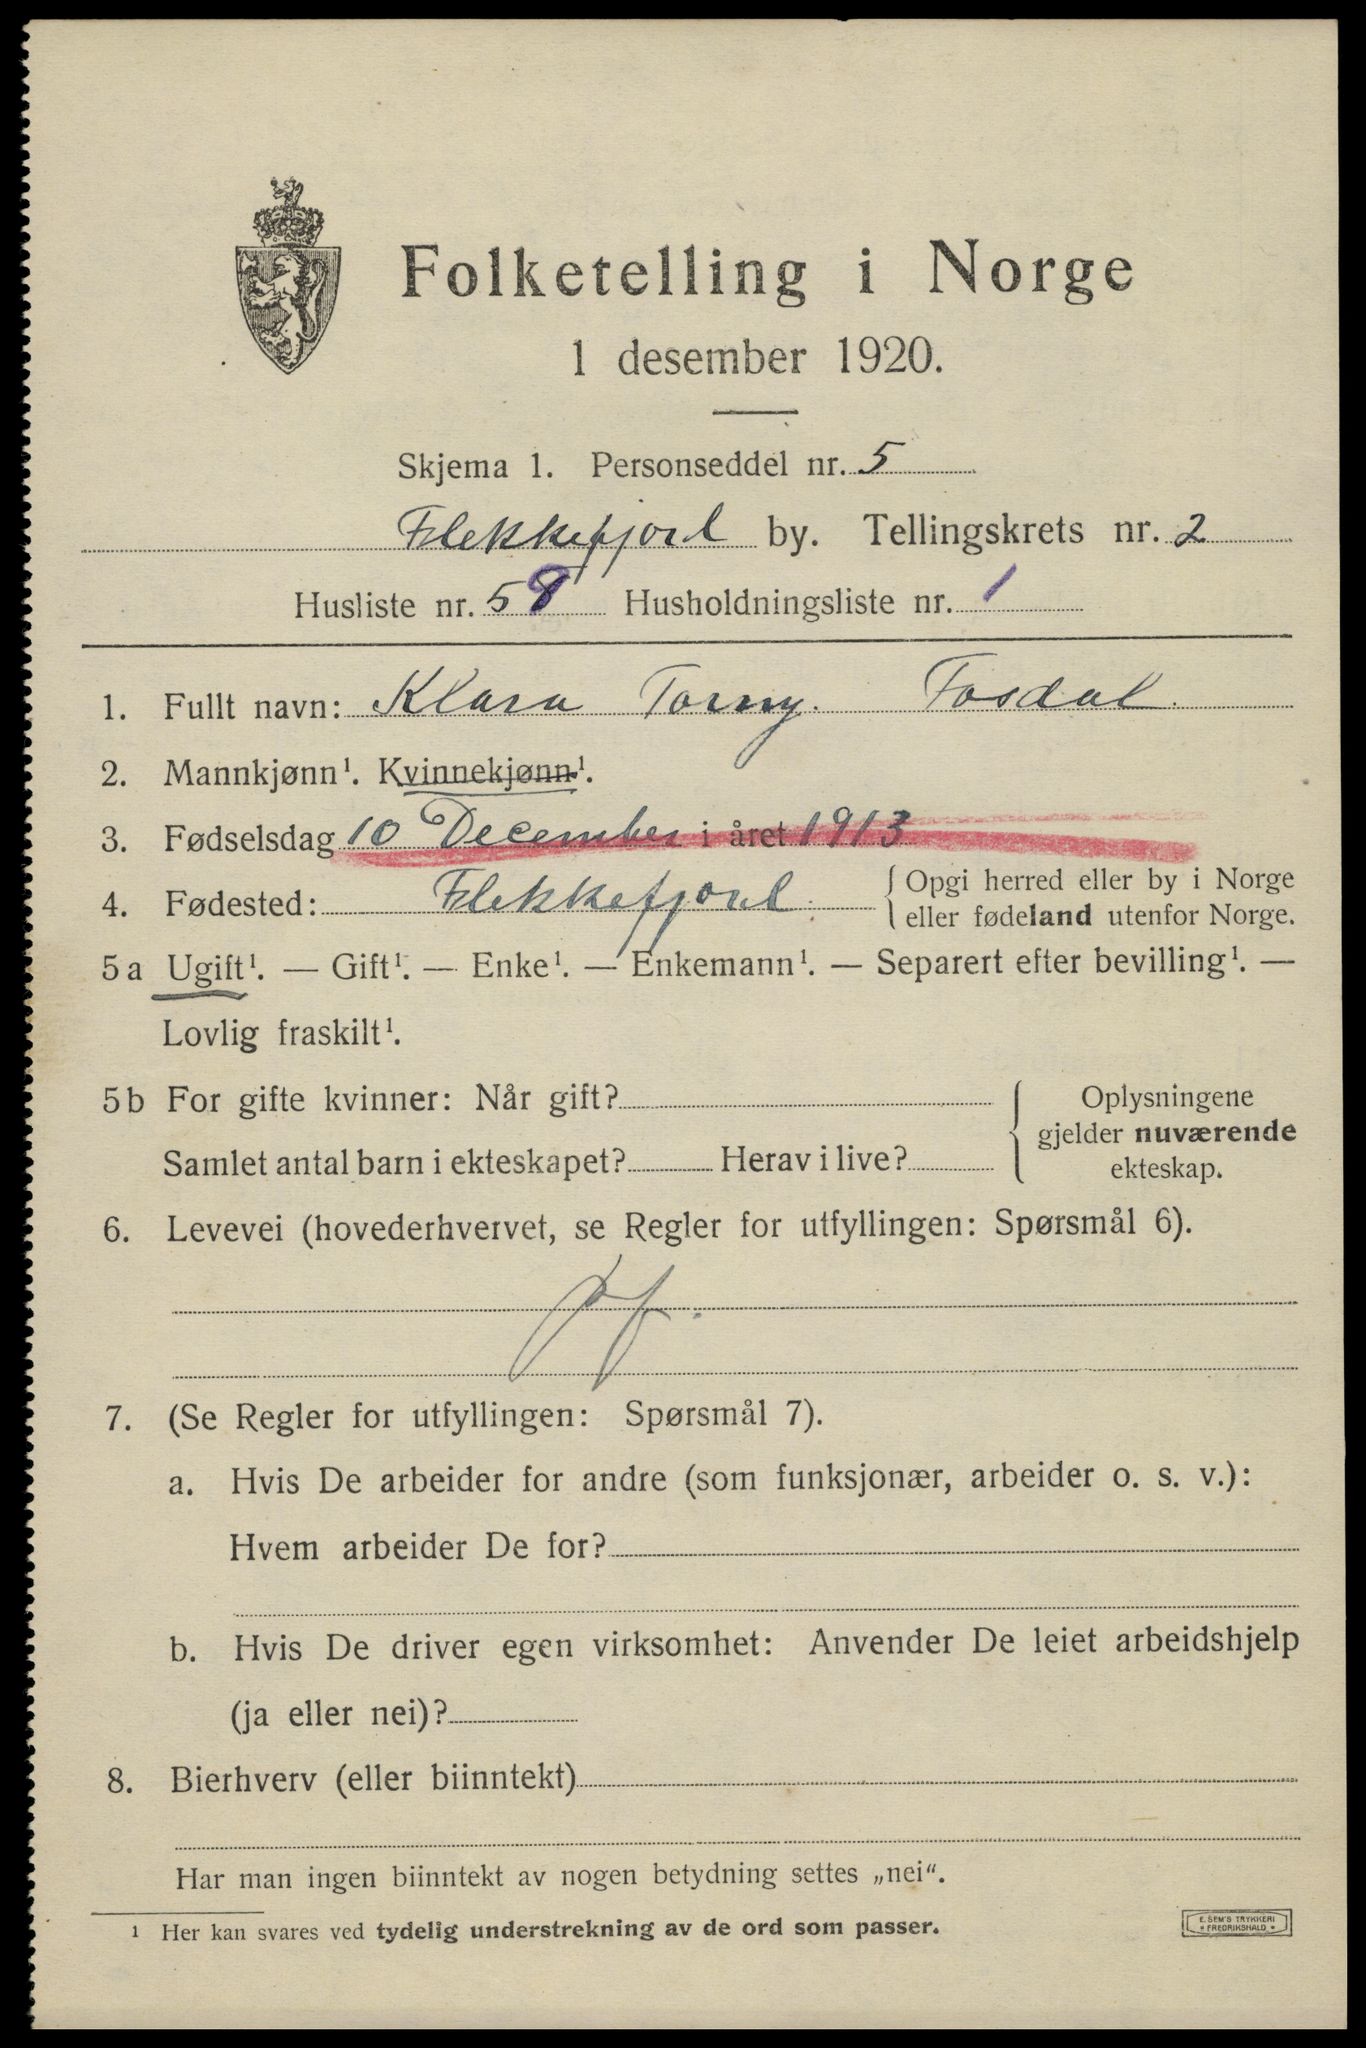 Folketelling i Norge
1 desember 1920.
Skjema 1. Personseddel nr. 5
Flekkefjord by. Tellingskrets nr. 2
Husliste nr. 58 Husholdningsliste nr. 1
1. Fullt navn: Klara Torny. Fosdal.
2. Mannkjønn¹. Kvinnekjønn¹.
3. Fødselsdag 10 December i året 1913
4. Fødested: Flekkefjord. { Opgi herred eller by i Norge
eller fødeland utenfor Norge.
5a Ugift¹. — Gift¹. — Enke¹. — Enkemann¹. — Separert efter bevilling¹. —
Lovlig fraskilt¹.
5b For gifte kvinner: Når gift?
Samlet antal barn i ekteskapet? Herav i live?
{ Oplysningene
gjelder nuværende
ekteskap.
6. Levevei (hovederhvervet, se Regler for utfyllingen: Spørsmål 6).
7. (Se Regler for utfyllingen: Spørsmål 7).
a. Hvis De arbeider for andre (som funksjonær, arbeider o. s. v.):
Hvem arbeider De for?
b. Hvis De driver egen virksomhet: Anvender De leiet arbeidshjelp
(ja eller nei)?
8. Bierhverv (eller biinntekt)
Har man ingen biinntekt av nogen betydning settes „nei“.
¹ Her kan svares ved tydelig understrekning av de ord som passer.
E. SEM'S TRYKKERI
* FREDRIKSHALD *